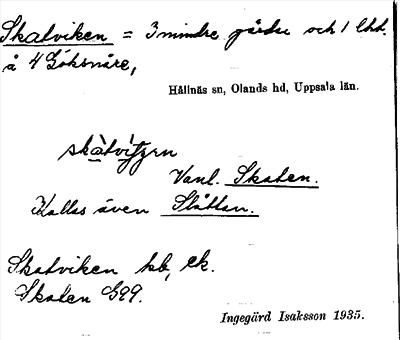 Skatviken = 3 mindre gårdar och 1 lht.
å 4 Göksnåre,
Hållnäs sn, Olands hd, Uppsala län.
Vanl. Skaten.
Kallas även Slåttan.
Skatviken hb, ek.
Skaten G99.
Ingegärd Isaksson 1935.